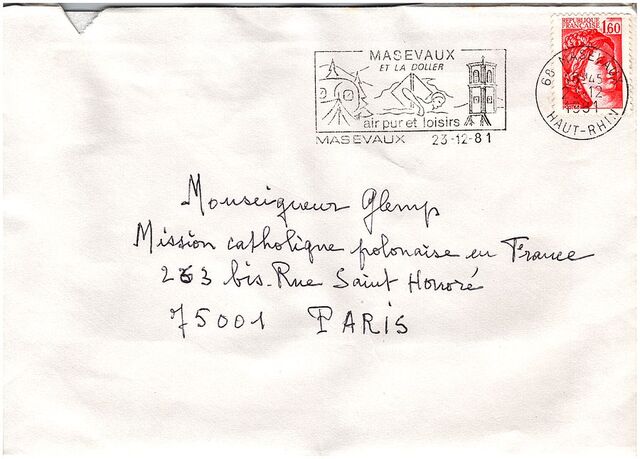 REPUBLIQUE
FRANÇAISE 1,60
MASEVAUX
ET LA DOLLER
air pur et loisirs
MASEVAUX 23-12-81
68 MASEVAUX
12
1981
HAUT-RHIN
Monseigneur Glemp
Mission catholique polonaise en France
263 bis. Rue Saint Honoré
75001 PARIS